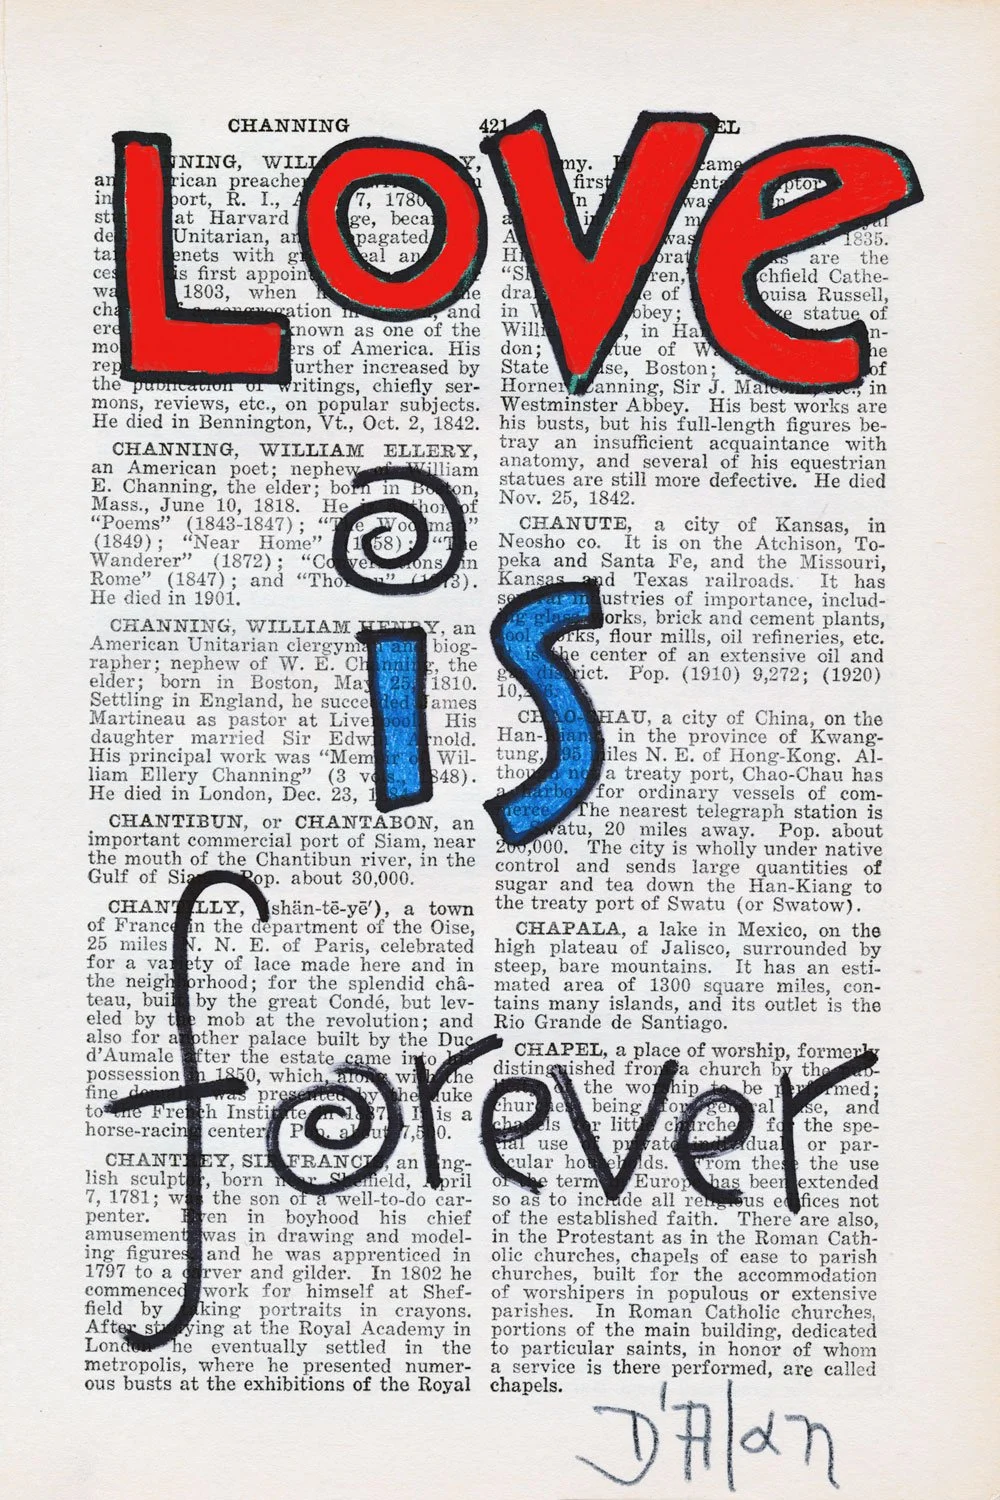 LOVe
is
forever
D'Alan
CHANNING 421
mons, reviews, etc., on popular subjects.
He died in Bennington, Vt., Oct. 2, 1842.
CHANNING, WILLIAM ELLERY,
an American poet; nephew of William
E. Channing, the elder; born in Boston,
Mass., June 10, 1818. He is author of
"Poems" (1843-1847); "The Woodman"
(1849); "Near Home" (1858); "The
Wanderer" (1872); "Conversations in
Rome" (1847); and "Thoreau" (1873).
He died in 1901.
CHANNING, WILLIAM HENRY, an
American Unitarian clergyman and biog-
rapher; nephew of W. E. Channing, the
elder; born in Boston, May 25, 1810.
Settling in England, he succeeded James
Martineau as pastor at Liverpool. His
daughter married Sir Edwin Arnold.
His principal work was "Memoir of Wil-
liam Ellery Channing" (3 vols., 1848).
He died in London, Dec. 23,
CHANTIBUN, or CHANTABON, an
important commercial port of Siam, near
the mouth of the Chantibun river, in the
Gulf of Siam. Pop. about 30,000.
CHANTILLY, (shän-tē-yē'), a town
of France in the department of the Oise,
25 miles N. N. E. of Paris, celebrated
for a variety of lace made here and in
the neighborhood; for the splendid châ-
teau, built by the great Condé, but lev-
eled by the mob at the revolution; and
also for another palace built by the Duc
d'Aumale after the estate came into his
possession in 1850, which, along with the
fine domain, was presented by the duke
to the French Institute in 1887. It is a
horse-racing center. Pop. about 7,500.
CHANTREY, SIR FRANCIS, an Eng-
lish sculptor, born near Sheffield, April
7, 1781; was the son of a well-to-do car-
penter. Even in boyhood his chief
amusement was in drawing and model-
ing figures, and he was apprenticed in
1797 to a carver and gilder. In 1802 he
commenced work for himself at Shef-
field by taking portraits in crayons.
After studying at the Royal Academy in
London he eventually settled in the
metropolis, where he presented numer-
ous busts at the exhibitions of the Royal
Westminster Abbey. His best works are
his busts, but his full-length figures be-
tray an insufficient acquaintance with
anatomy, and several of his equestrian
statues are still more defective. He died
Nov. 25, 1842.
CHANUTE, a city of Kansas, in
Neosho co. It is on the Atchison, To-
peka and Santa Fe, and the Missouri,
Kansas and Texas railroads. It has
several industries of importance, includ-
ing glass works, brick and cement plants,
tool works, flour mills, oil refineries, etc.
It is the center of an extensive oil and
gas district. Pop. (1910) 9,272; (1920)
CHAO-CHAU, a city of China, on the
Han-Kiang, in the province of Kwang-
tung, 195 miles N. E. of Hong-Kong. Al-
though not a treaty port, Chao-Chau has
a harbor for ordinary vessels of com-
merce. The nearest telegraph station is
Swatu, 20 miles away. Pop. about
200,000. The city is wholly under native
control and sends large quantities of
sugar and tea down the Han-Kiang to
the treaty port of Swatu (or Swatow).
CHAPALA, a lake in Mexico, on the
high plateau of Jalisco, surrounded by
steep, bare mountains. It has an esti-
mated area of 1300 square miles, con-
tains many islands, and its outlet is the
Rio Grande de Santiago.
CHAPEL, a place of worship, formerly
distinguished from a church by the pub-
licity of the worship to be performed;
churches being for general use, and
chapels or little churches for the spe-
cial use of private individuals or par-
ticular households. From these the use
of the term in Europe has been extended
so as to include all religious edifices not
of the established faith. There are also,
in the Protestant as in the Roman Cath-
olic churches, chapels of ease to parish
churches, built for the accommodation
of worshipers in populous or extensive
parishes. In Roman Catholic churches,
portions of the main building, dedicated
to particular saints, in honor of whom
a service is there performed, are called
chapels.